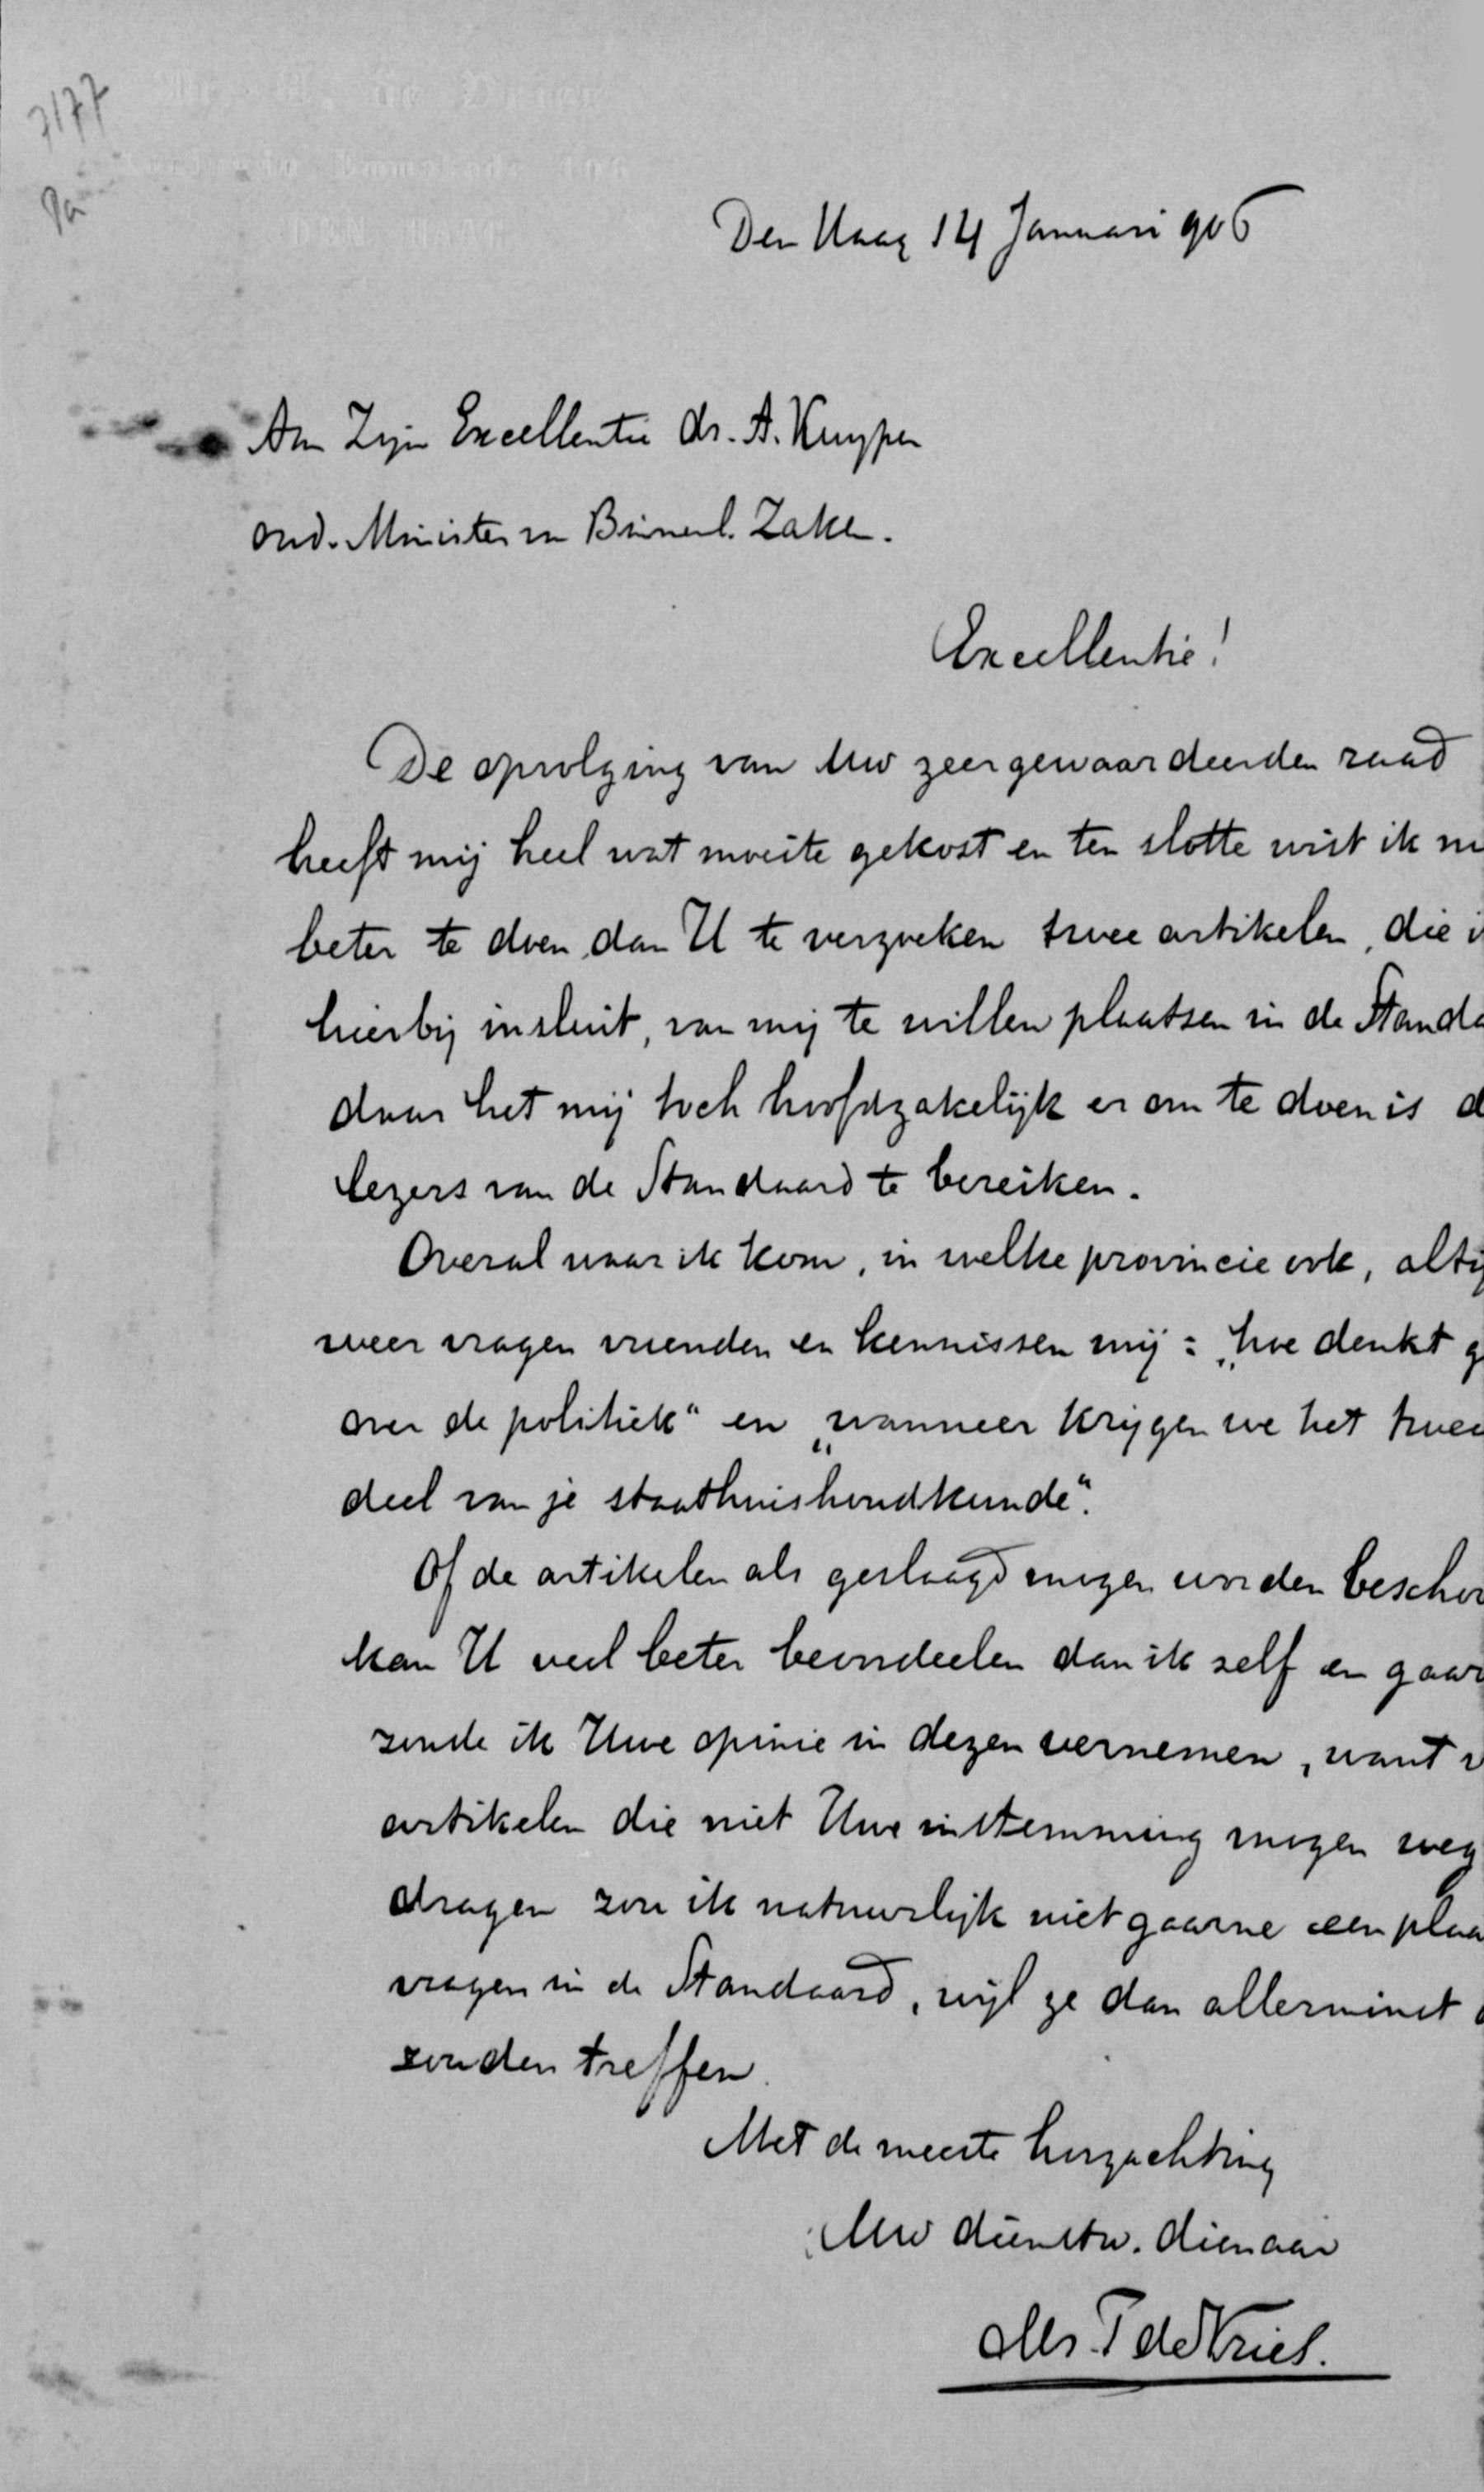 7177
Den Haag 14 Januari 906
Aan Zijn Excellentie dr. A. Kuyper
oud-Minister van Binnenl. Zaken.
Excellentie!
De opvolging van Uw zeergewaardeerden raad
heeft mij heel wat moeite gekost en ten slotte wist ik
beter te doen, dan U te verzoeken twee artikelen, die
hierbij insluit, van mij te willen plaatsen in de Standa
daar het mij toch hoofdzakelijk er om te doen is d
lezers van de Standaard te bereiken.
Overal waar ik kom, in welke provincie ook, altij
weer vragen vrienden en kennissen mij: „hoe denkt g
over de politiek“ en „wanneer krijgen we het twee
deel van je staathuishoudkunde“.
Of de artikelen als geslaagd mogen worden beschou
kan U veel beter beoordeelen dan ik zelf en gaar
zoude ik Uwe opinie in dezen vernemen, want v
artikelen die niet Uwe instemming mogen weg
dragen zou ik natuurlijk niet gaarne een plaa
vragen in de Standaard, wijl ze dan allerminst
zouden treffen.
Met de meeste hoogachting
Uw dienstw. dienaar
Mr. T de Vries.